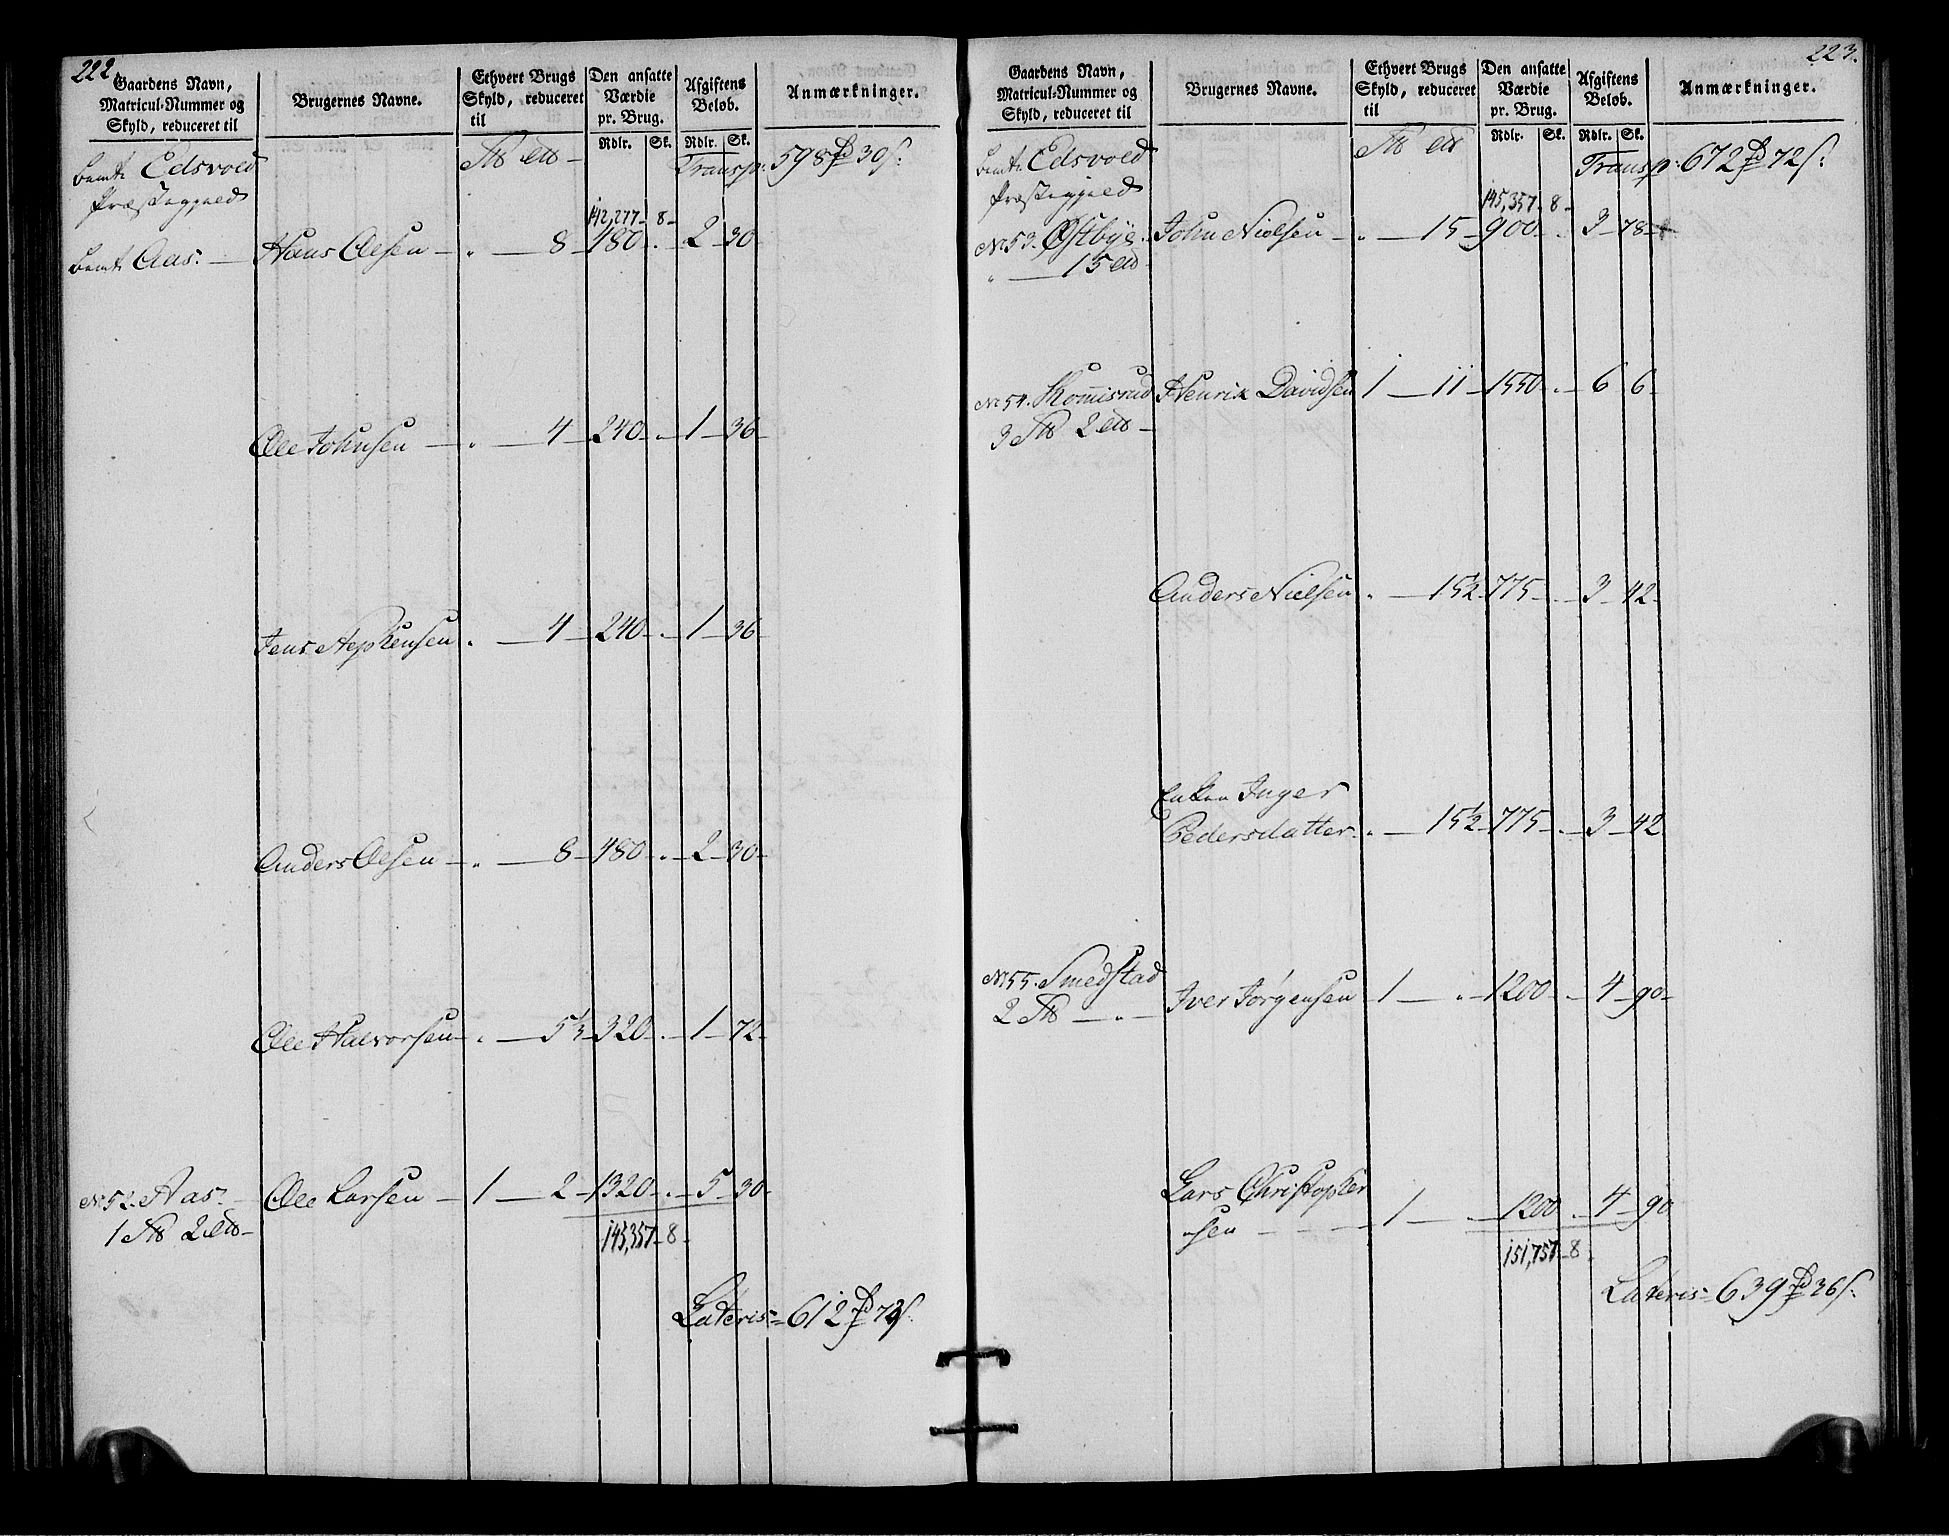 222.
Gaardens Navn, Matricul-Nummer og Skyld, reduceret til
Brugernes Navne.
Ethvert Brugs Skyld, reduceret til
Den ansatte Værdie pr. Brug.
Afgiftens Beløb.
Anmærkninger.
Rdlr. Sk. Rdlr. Sk.
bemte Edsvold
Præstegjeld
Transp: 598 rd 30 s:
142,277 - 8 -
bemte Aas. — Hans Olsen — " — 8 - 480 - . - 2 - 30 -
Ole Johnsen — " — 4 - 240 - . - 1 - 36 -
Jens Stephensen " — 4 - 240 - . - 1 - 36
Anders Olsen — " — 8 - 480 - . - 2 - 30 -
Ole Halvorsen - " — 5⅓ - 320 - . - 1 - 72 -
No 52. Aas. Ole Larsen — 1 — 2 - 1320 - . - 5 - 30 -
145,357 - 8 -
Lateris = 612 rd 72 s:
223.
Gaardens Navn, Matricul-Nummer og Skyld, reduceret til
Brugernes Navne.
Ethvert Brugs Skyld, reduceret til
Den ansatte Værdie pr. Brug.
Afgiftens Beløb.
Anmærkninger.
Rdlr. Sk. Rdlr. Sk.
bemte Edsvold
Præstegjeld
Transp: 672 rd 72 s:
145,357 - 8 -
No 53. Østbye. John Nielsen — " — 15 - 900 - . - 3 - 78 -
No 54. Henrik Davidsen 1 — 11 - 1550 - . - 6 - 6 -
Anders Nielsen " — 15½ - 775 - . - 3 - 42 -
Enken Inger
Pedersdatter " — 15½ - 775 - . - 3 - 42
No 55. Smedstad Iver Jørgensen 1 — " - 1200 - . - 4 - 90 -
Lars Christopher
-sen — 1 — " - 1200 . - 4 - 90
151,757 - 8 -
Lateris = 639 rd 36 s: